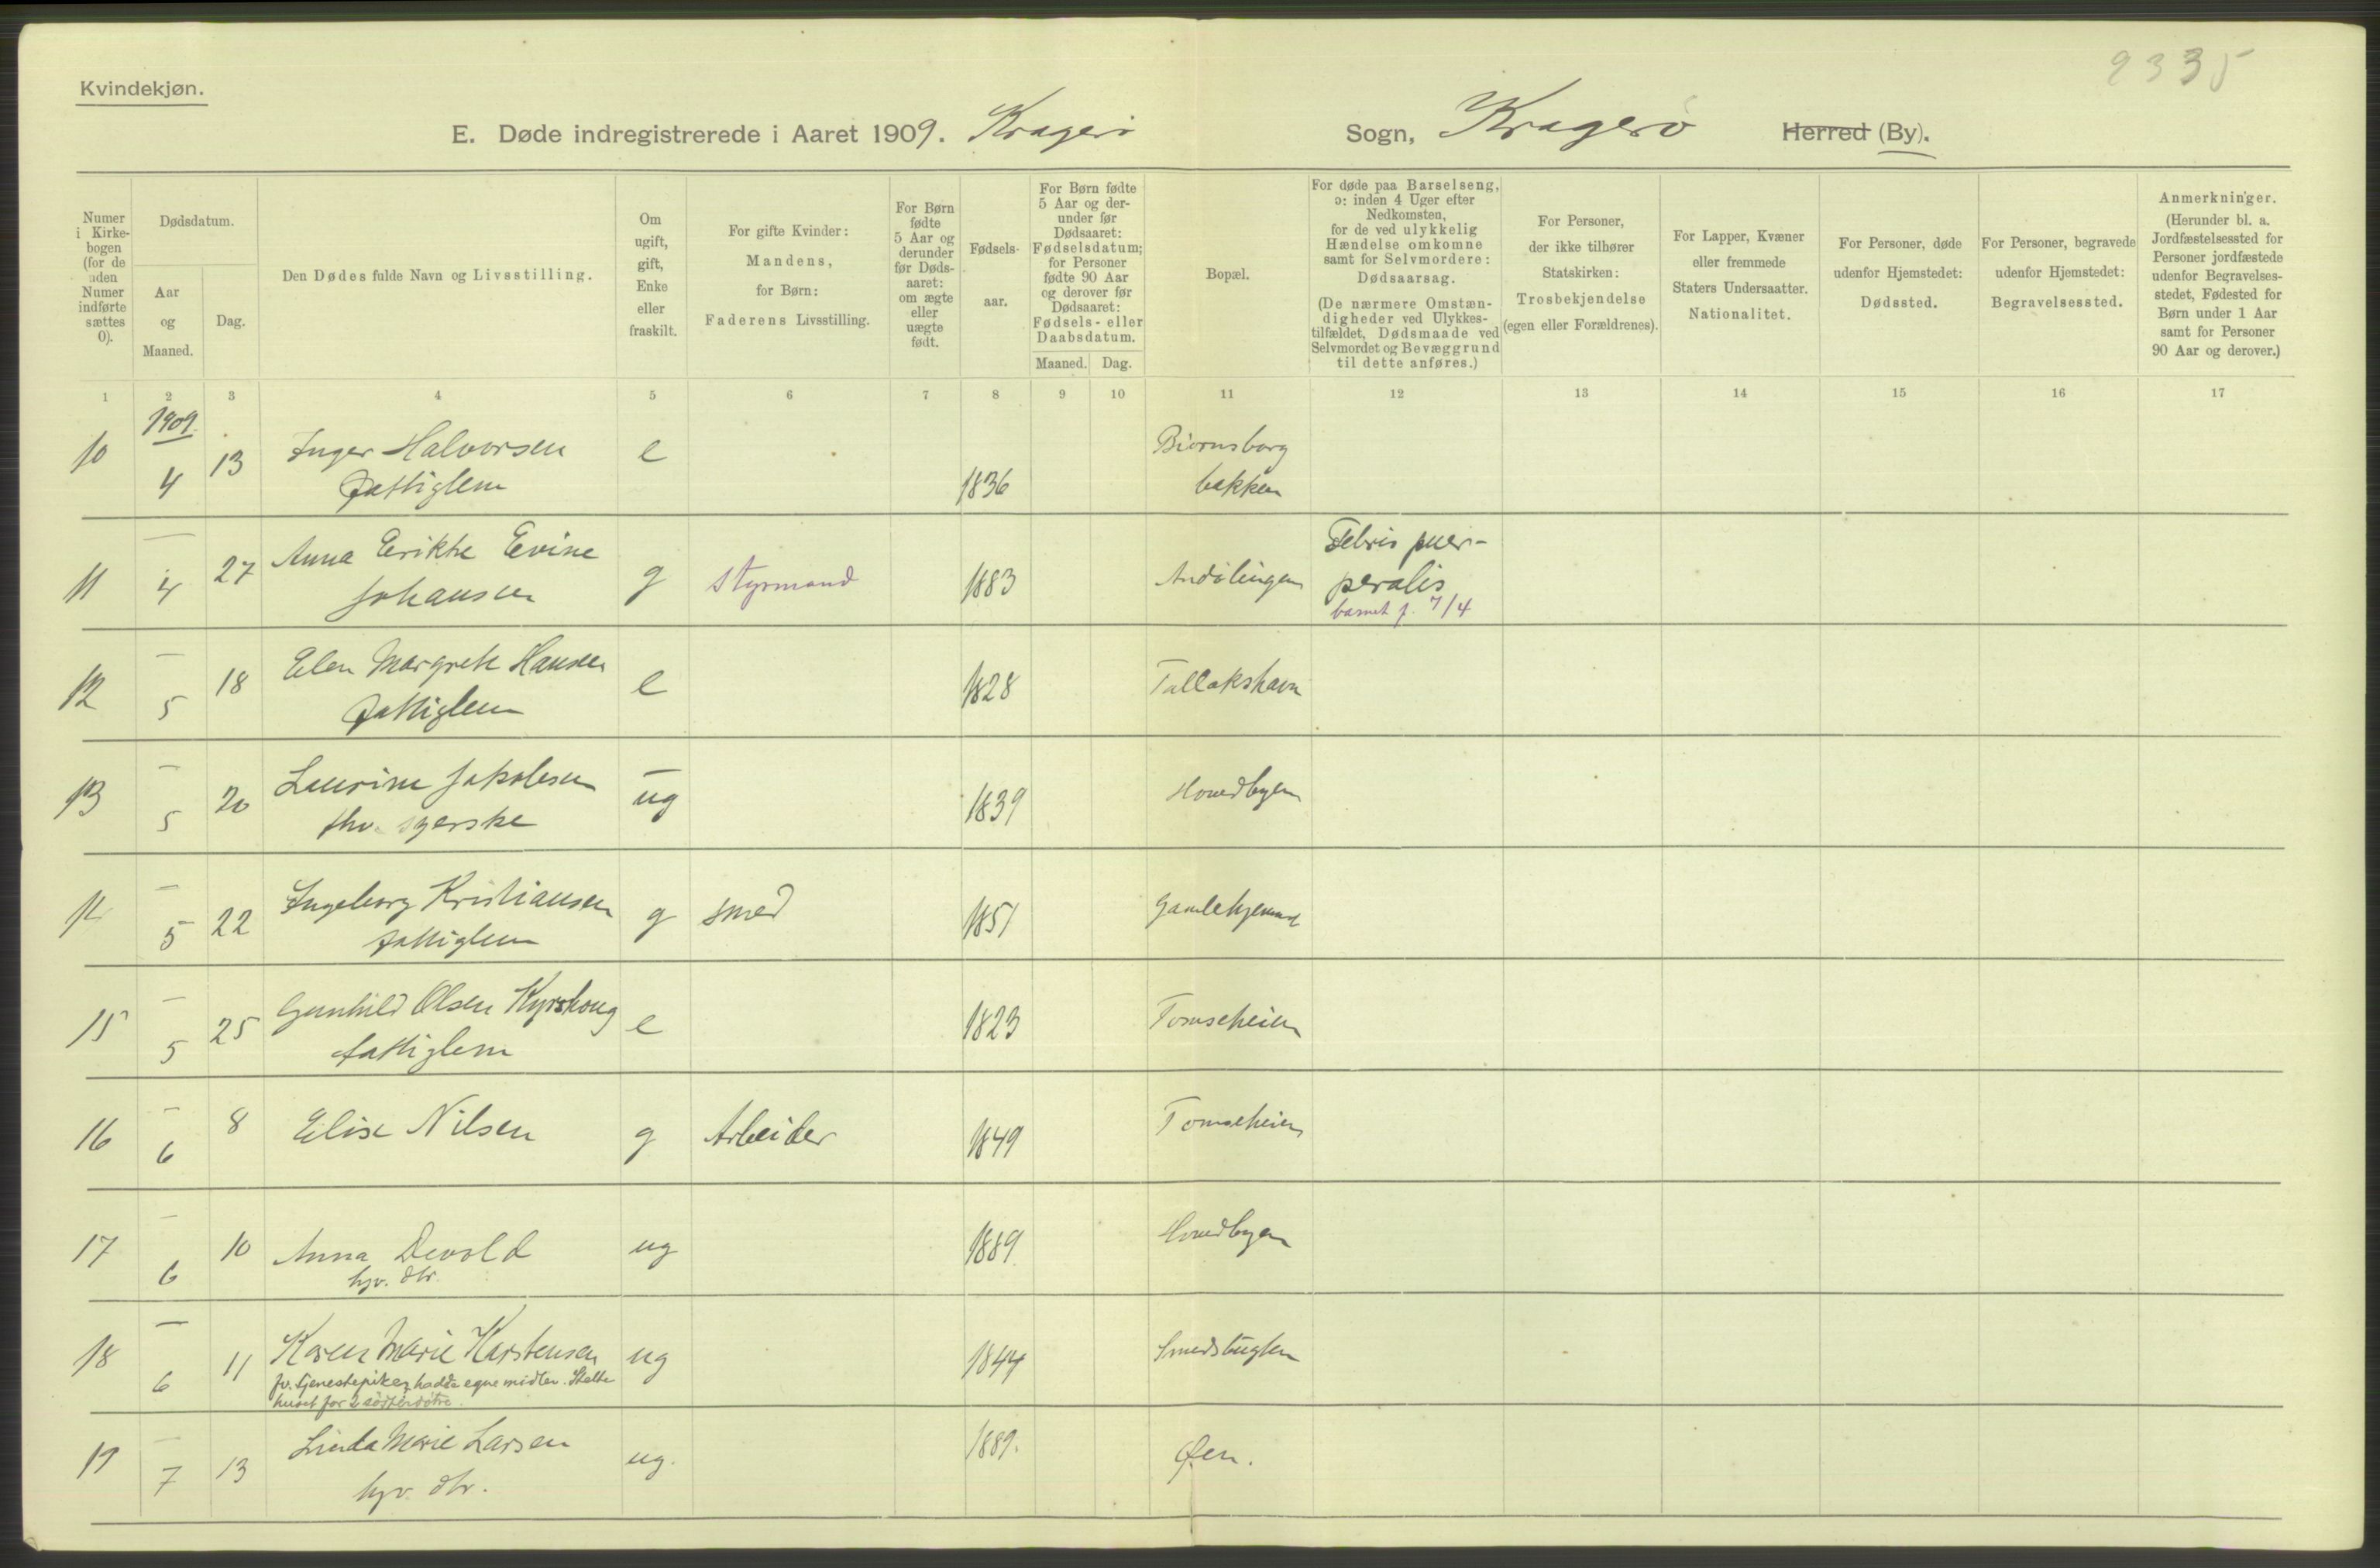 Kvindekjøn.
2335
E. Døde indregistrerede i Aaret 1909. Kragerø Sogn, Kragerø Herred (By).
Numer
i Kirke-
bogen
(for de
uden
Numer
indførte
sættes
0).
Dødsdatum.
Aar
og
Maaned.
Dag.
Den Dødes fulde Navn og Livsstilling.
Om
ugift,
gift,
Enke
eller
fraskilt.
For gifte Kvinder:
Mandens,
for Børn:
Faderens Livsstilling.
For Børn
fødte
5 Aar og
derunder
før Døds-
aaret:
om ægte
eller
uægte
født.
Fødsels-
aar.
For Børn fødte
5 Aar og der-
under før
Dødsaaret:
Fødselsdatum;
for Personer
fødte 90 Aar
og derover før
Dødsaaret:
Fødsels- eller
Daabsdatum.
Maaned. Dag.
Bopæl.
For døde paa Barselseng,
ɔ: inden 4 Uger efter
Nedkomsten,
for de ved ulykkelig
Hændelse omkomne
samt for Selvmordere:
Dødsaarsag.
(De nærmere Omstæn-
digheder ved Ulykkes-
tilfældet, Dødsmaade ved
Selvmordet og Bevæggrund
til dette anføres.)
For Personer,
der ikke tilhører
Statskirken:
Trosbekjendelse
(egen eller Forældrenes).
For Lapper, Kvæner
eller fremmede
Staters Undersaatter.
Nationalitet.
For Personer, døde
udenfor Hjemstedet:
Dødssted.
For Personer, begravede
udenfor Hjemstedet:
Begravelsessted.
Anmerkninger.
(Herunder bl. a.
Jordfæstelsessted for
Personer jordfæstede
udenfor Begravelses-
stedet, Fødested for
Børn under 1 Aar
samt for Personer
90 Aar og derover.)
1 2 3 4 5 6 7 8 9 10 11 12 13 14 15 16 17
1909.
10 4 13 Inger Halvorsen e 1836 Biørnsborg
Fattiglem bakken
11 — 4 27 Anna Erikke Evine g styrmand 1883 Andølingen Febris puer-
Johansen peralis
barnet f. 7/4
12 — 5 18 Elen Margrete Hansen e 1828 Tallakshavn
Fattiglem
13 — 5 20 Laurine Jakobsen ug 1839 Hovedbyen
fhv. syerske
14 — 5 22 Ingeborg Kristiansen g smed 1851
fattiglem
15 — 5 25 Gunhild Olsen Kyrshoug e 1823 Tomseheien
fattiglem
16 — 6 8 Elise Nilsen g Arbeider 1849 Tomseheien
17 — 6 10 Anna Devold ug 1889 Hovedbyen
hjv. dtr.
18 — 6 11 Karen Marie Karstensen ug 1844 Smedsbugten
fv. tjenestepike, hadde egne midler. Stelte
huset for 2 søsterdøtre.
19 — 7 13 Linda Marie Larsen ug. 1889. Øen.
hjv. dtr.